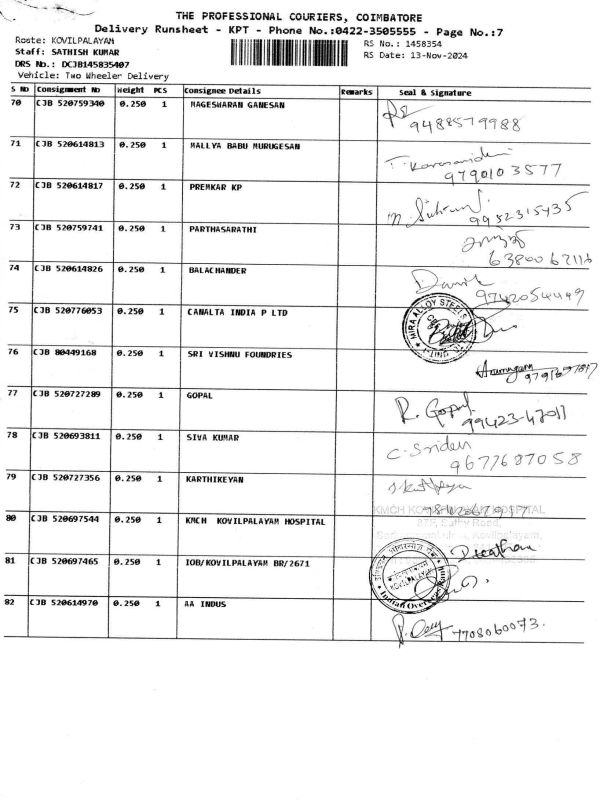 THE PROFESSIONAL COURIERS, COIMBATORE
Delivery Runsheet - KPT - Phone No.:0422-3505555 - Page No.:7
Route: KOVILPALAYAM
RS No.: 1458354
Staff: SATHISH KUMAR
RS Date: 13-Nov-2024
DRS No.: DCJB145835407
Vehicle: Two Wheeler Delivery
S No Consignment No Weight PCS Consignee Details Remarks Seal & Signature
70 CJB 520759340 0.250 1 MAGESWARAN GANESAN
9488579988
71 CJB 520614813 0.250 1 MALLYA BABU MURUGESAN
9790103577
72 CJB 520614817 0.250 1 PREMKAR KP
9952315435
73 CJB 520759741 0.250 1 PARTHASARATHI
74 CJB 520614826 0.250 1 BALACHANDER
9742054449
75 CJB 520776053 0.250 1 CANALTA INDIA P LTD
MIRA ALLOY STEELS
76 CJB 80449168 0.250 1 SRI VISHNU FOUNDRIES
Arumugam
77 CJB 520727289 0.250 1 GOPAL
R. Gopal
99423-47011
78 CJB 520693811 0.250 1 SIVA KUMAR
C. Sridev
9677687058
79 CJB 520727356 0.250 1 KARTHIKEYAN
80 CJB 520697544 0.250 1 KMCH KOVILPALAYAM HOSPITAL
KMCH KOVILPALAYAM HOSPITAL
81 CJB 520697465 0.250 1 IOB/KOVILPALAYAM BR/2671
KOVILPALAYAM
Indian Overseas Bank
82 CJB 520614970 0.250 1 AA INDUS
7708060073.